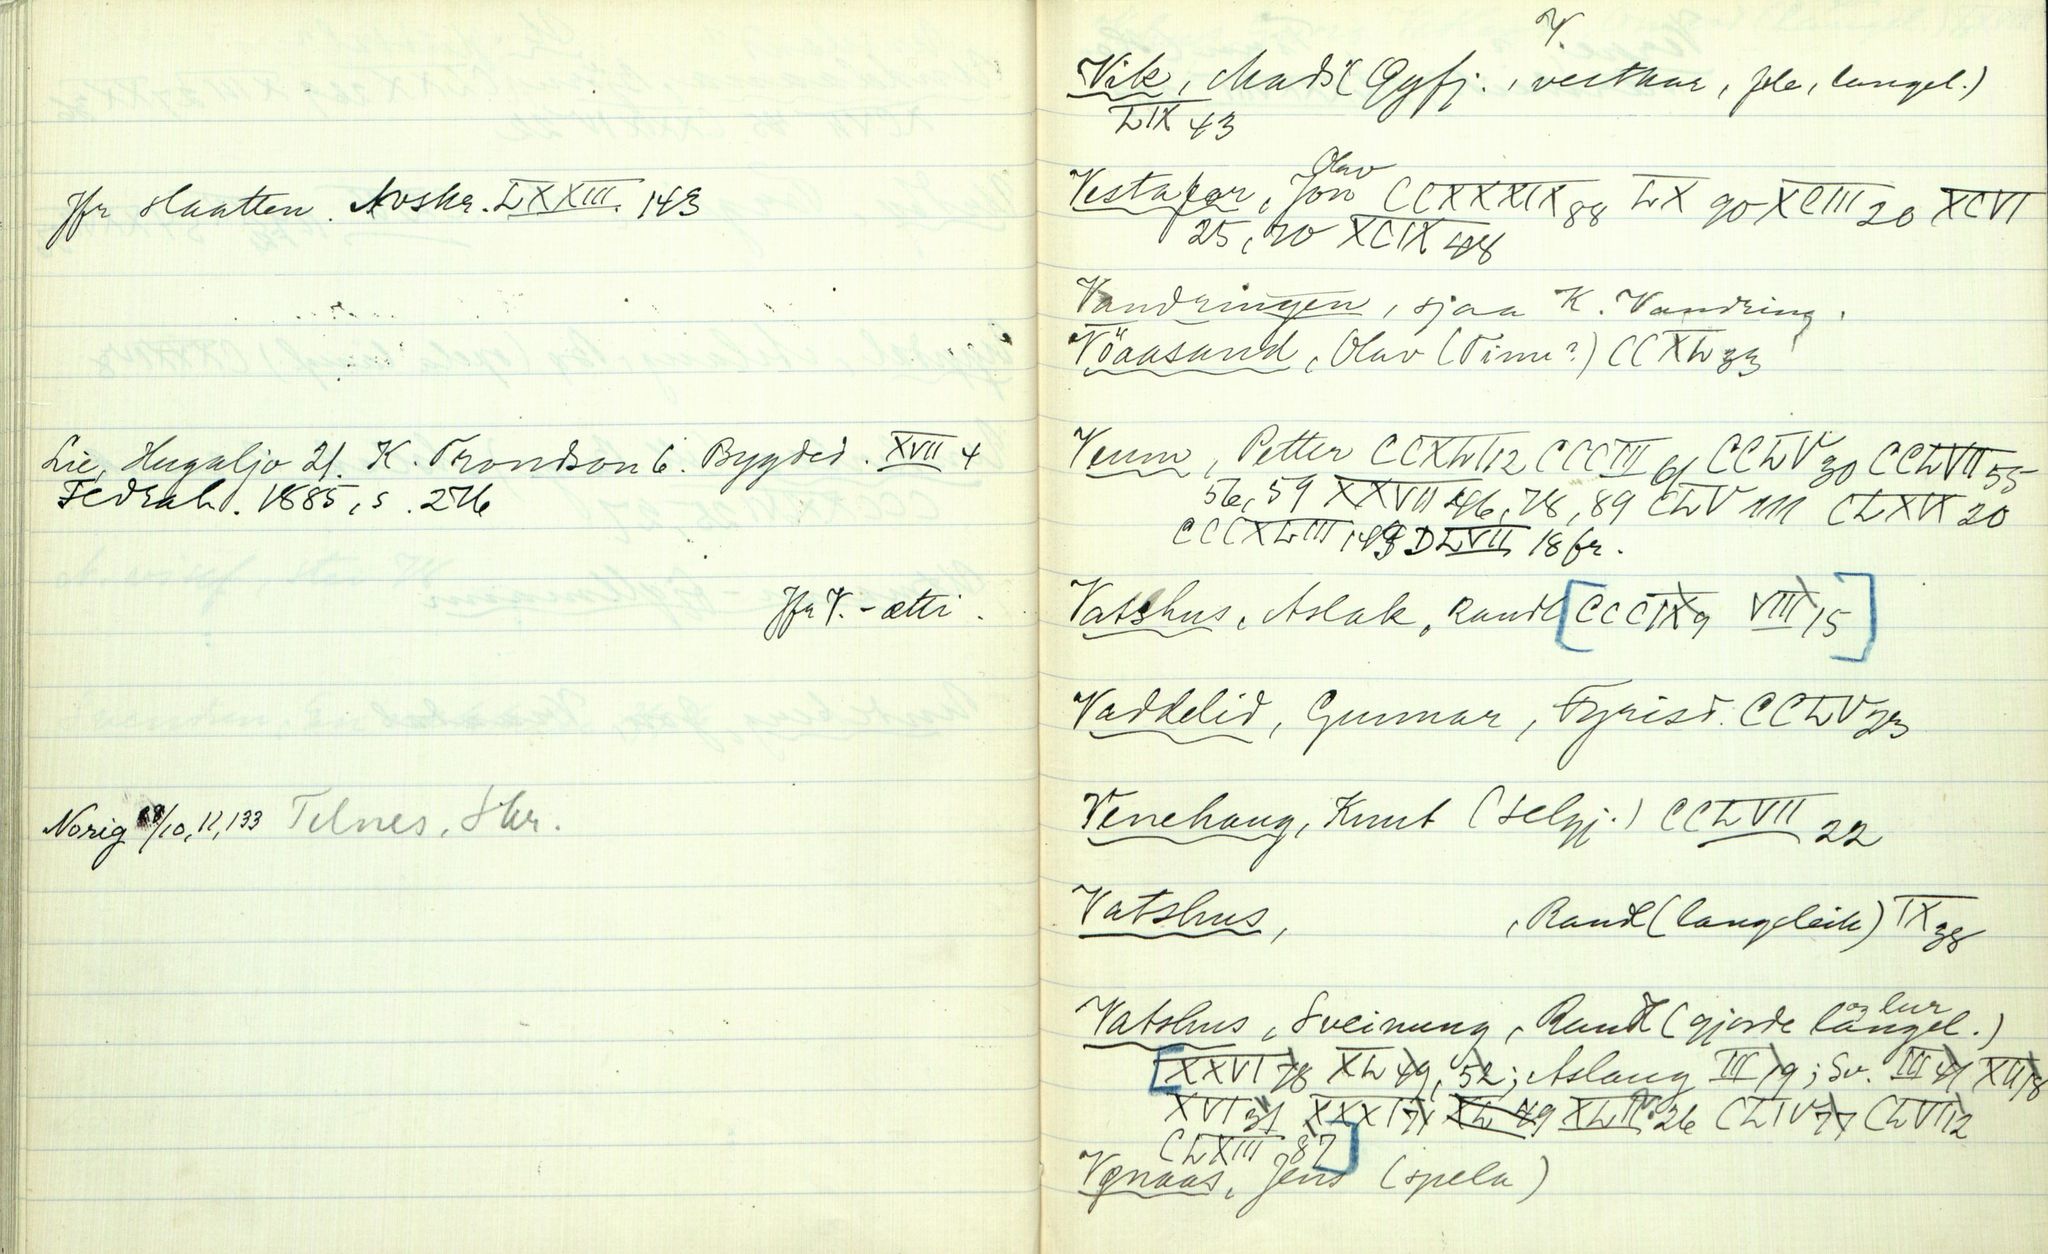 Jfr Haatten. Avskr. LXXIII 143
Lie, Hugaljo 21. K. Trondson 6. Bygded. XVII 4
Fedrah. 1885, s. 276
Jfr V.-ætti.
Norig /10, 11, 133 Telnes, Skr.
V
Vik, Mads (Gyfj., vesthur, fela, langel.)
LIX 43
Olav
Vestafor, Jon CCXXXIX 88 LX 90 XCIII 20 XCVI
25, 70 XCIX 48
Vandringen, sjaa K. Vandring.
Vöaasund, Olav (Tinn?) CCXL 33
Venm, Petter CCXLI 12 CCCIII 61 CCLV 30 CCLVII 55
56, 59 XXVII 46, 78, 89 CLV 111 CLXVI 20
CCCXLIII 149 DLVII 18 fr.
Vatshus, Aslak, Raudl [CCCIX 9 VIII 15]
Vaddelid, Gunnar, Fyrisd. CCLV 23
Venehaug, Knut (Selgj.) CCLVII 22
Vatshus, , Raudl (langeleik) IX 38
og lur
Vatshus, Sveinung, Raudl (gjorde langel.)
[XXVI 78 XL 49, 52; Aslaug III 19; Sv. III 41 XII 18
XVI 31 XXXI 71 XL 49 XLII 26 CLIV 77 CLVII 2
CLXIII 87]
Vonaas, Jens (spela)